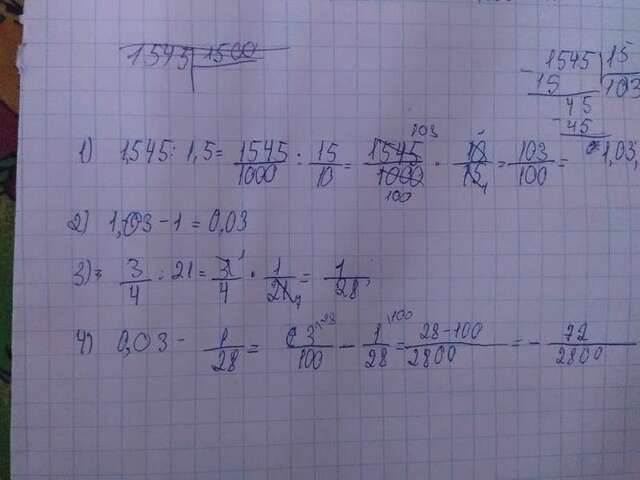 1545 | 1500
1545 | 15
- 15 | 103
45
- 45
1) 1,545 : 1,5 = 1545/1000 : 15/10 = 1545/1000 · 10/15 = 103/100 = 1,03,
103
100 1
2) 1,03 - 1 = 0,03
3) 3/4 : 21 = 3/4 · 1/21 = 1/28,
1 7
4) 0,03 - 1/28 = 3\28/100 - 1\100/28 = 28-100/2800 = - 72/2800